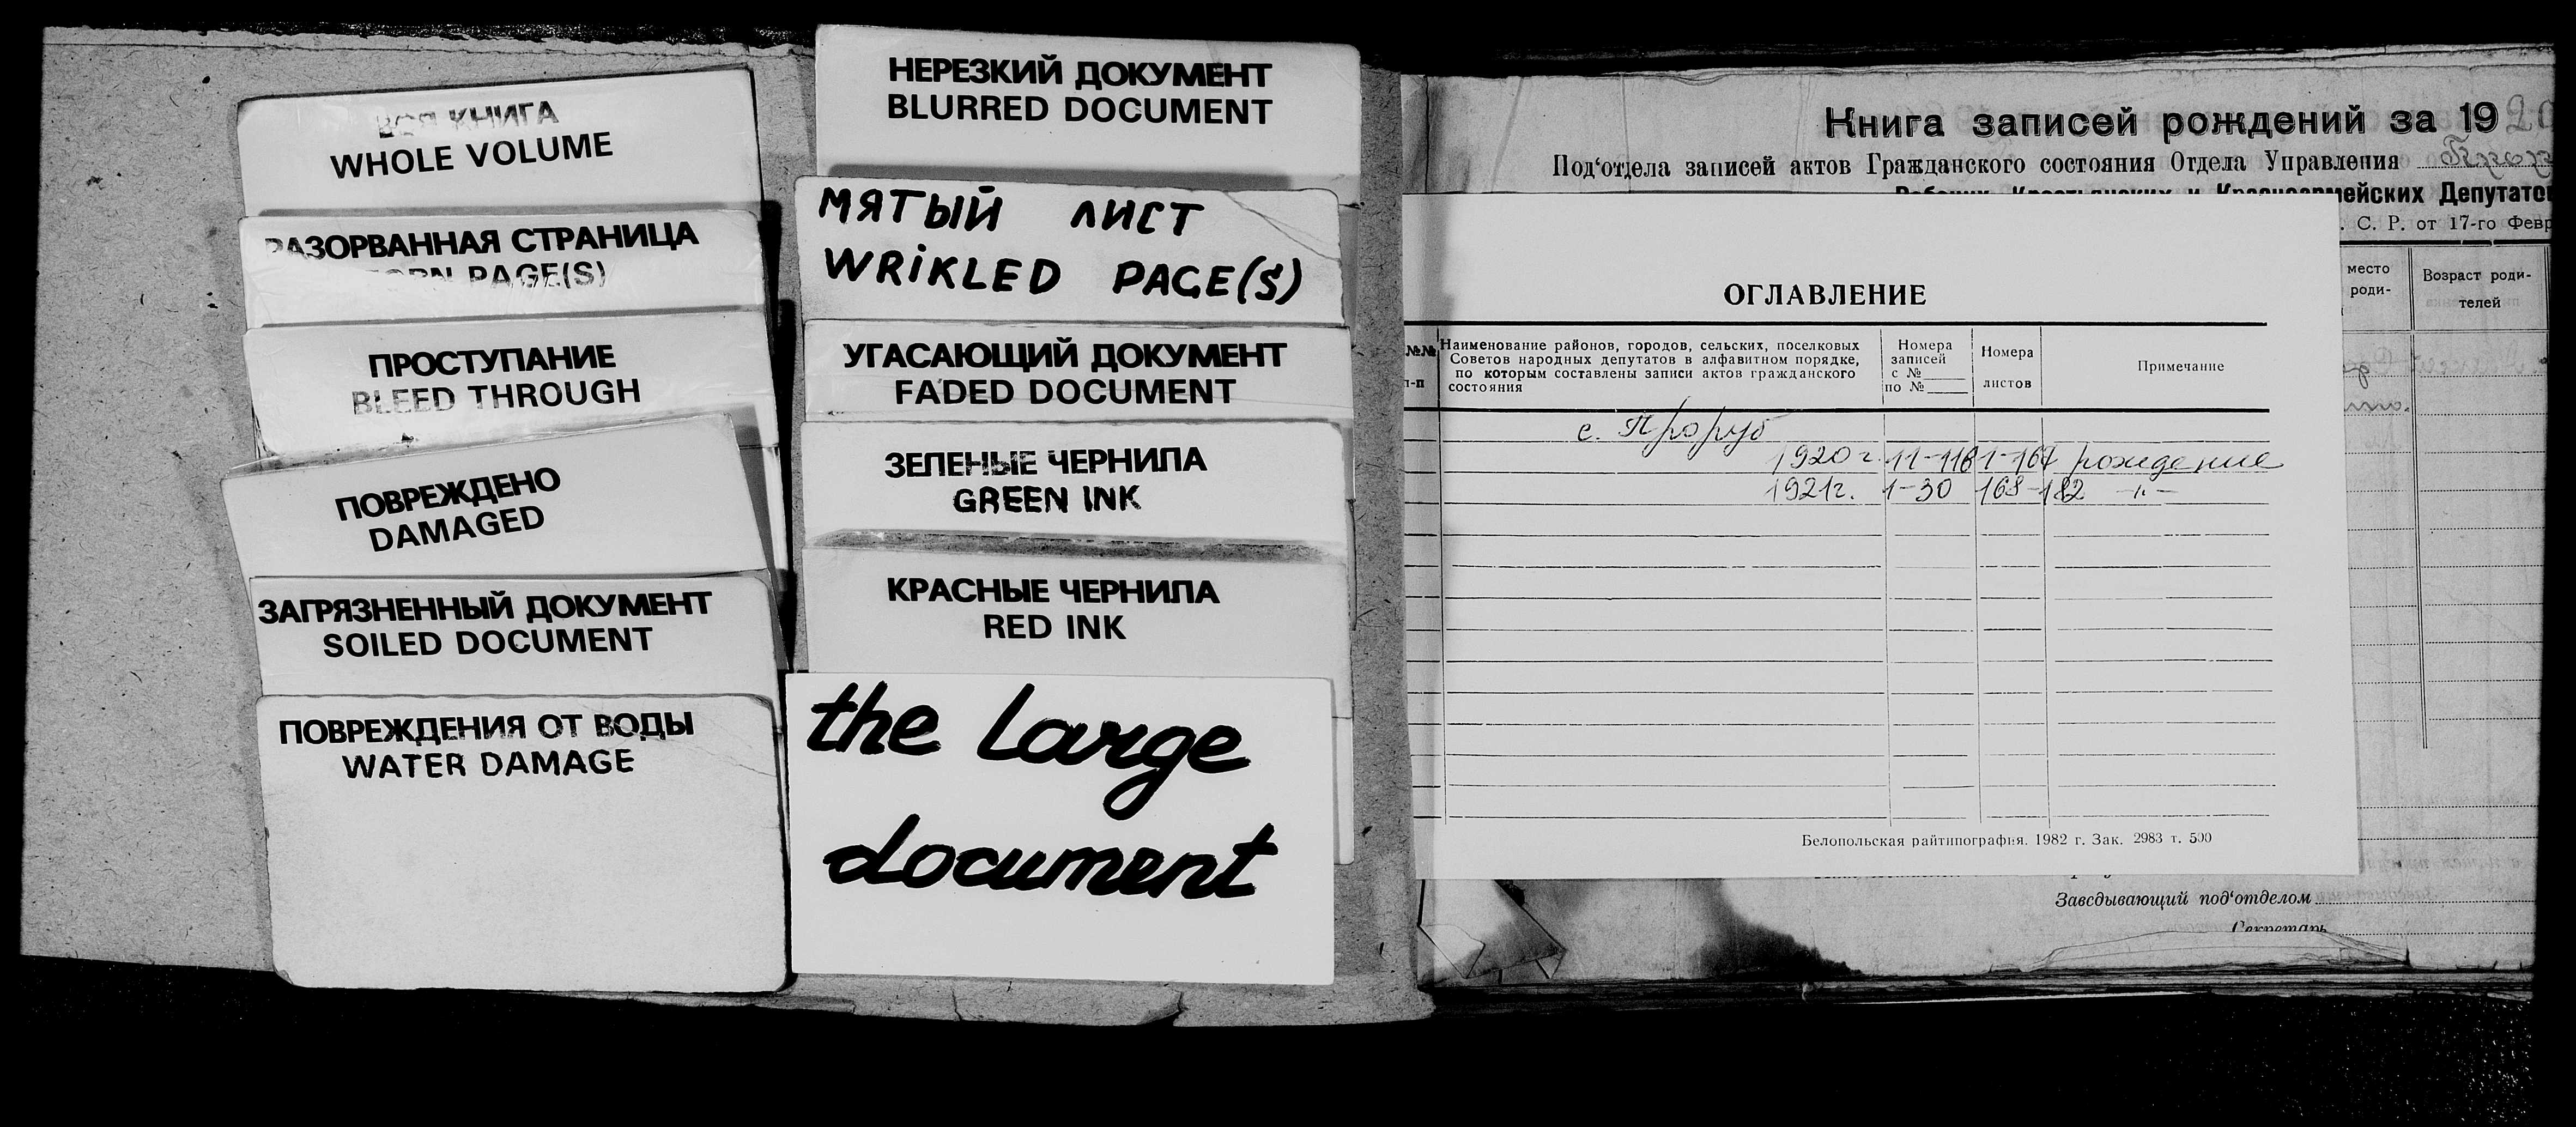 ВСЯ КНИГА
WHOLE VOLUME
РАЗОРВАННАЯ СТРАНИЦА
TORN PAGE(S)
ПРОСТУПАНИЕ
BLEED THROUGH
ПОВРЕЖДЕНО
DAMAGED
ЗАГРЯЗНЕННЫЙ ДОКУМЕНТ
SOILED DOCUMENT
ПОВРЕЖДЕНИЯ ОТ ВОДЫ
WATER DAMAGE
НЕРЕЗКИЙ ДОКУМЕНТ
BLURRED DOCUMENT
МЯТЫЙ ЛИСТ
WRIKLED PAGE(S)
УГАСАЮЩИЙ ДОКУМЕНТ
FADED DOCUMENT
ЗЕЛЕНЫЕ ЧЕРНИЛА
GREEN INK
КРАСНЫЕ ЧЕРНИЛА
RED INK
the large
document
Книга записей рождений за 1920
Под‘отдела записей актов Гражданского состояния Отдела Управления
Рабочих, Крестьянских и Красноармейских Депутатов
. С. Р. от 17-го Февр
место
роди-
Возраст роди-
телей
ОГЛАВЛЕНИЕ
№№
п-п
Наименование районов, городов, сельских, поселковых
Советов народных депутатов в алфавитном порядке,
по которым составлены записи актов гражданского
состояния
Номера
записей
с №
по №
Номера
листов
Примечание
с. Проруб
1920 г. 11-116 1-167 рождение
1921г. 1-30 168-182 -"-
Белопольская райтипография. 1982 г. Зак. 2983 т. 500
Заведывающий под‘отделом
Секретарь